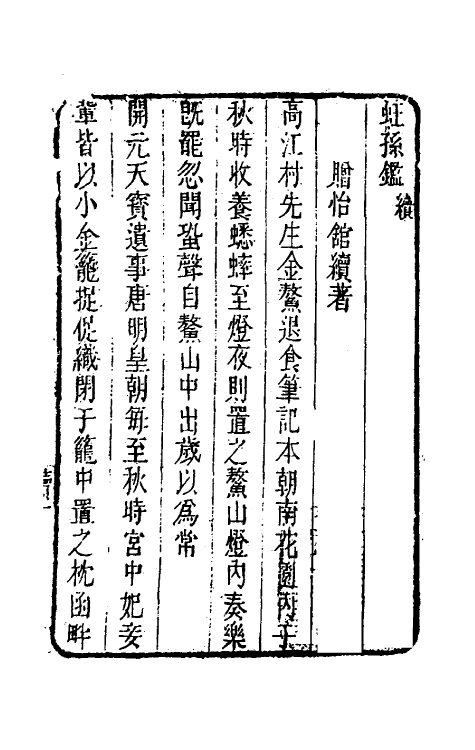 蚟孫鑑 續
贈怡館續著
高江村先生金鰲退食筆記本朝南花園內于
秋時收養蟋蟀至燈夜則置之鰲山燈內奏樂
旣罷忽聞蛩聲自鰲山中出歲以爲常
開元天寶遺事唐明皇朝每至秋時宮中妃妾
輩皆以小金籠捉促織閉于籠中置之枕函畔